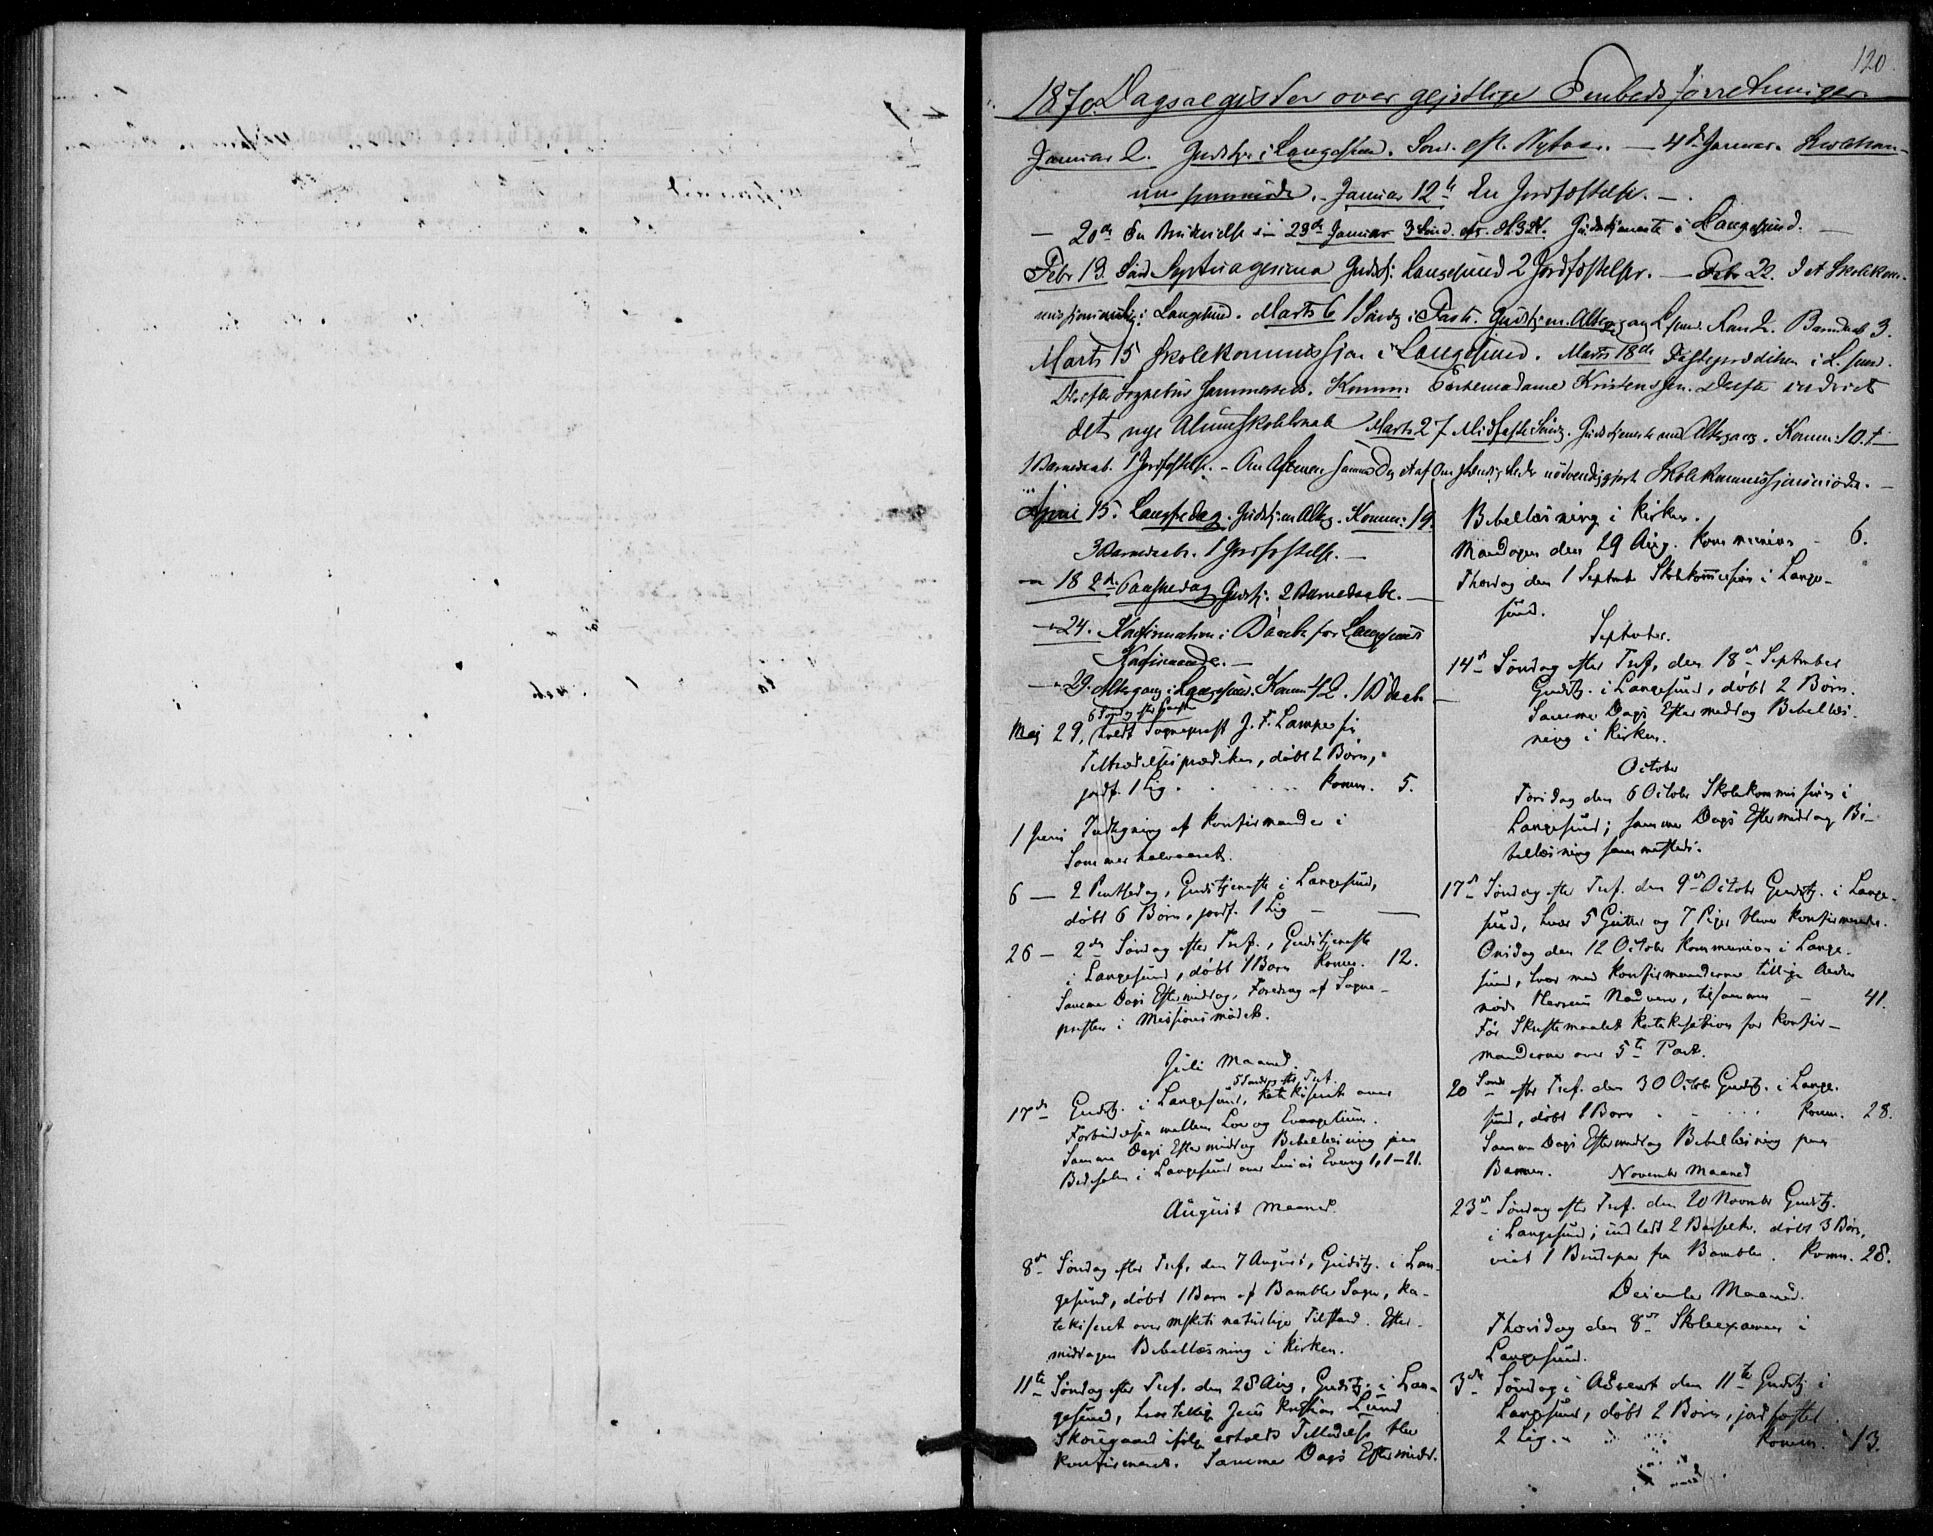 120.
1870. Dagsregister over gejstlige Embedsforretninger
Januar 2. Gudstj. i Langesund. Sønd. eft. Nytaar. — 4de Januar. Skolekom-
Januar 12te En Jordfæstelse. —
— 20de En 23de Januar 3 Sønd. Gudstjeneste i Langesund. —
Febr 13. Sønd Septuagesima Gudstj: Langesund 2 Jordfæstelser. — Febr 22. Skolekom-
i Langesund. Marts 6 1 Søndg i Faste. Gudstj. m. Alterg. Kom 2. Barnedaab 3.
Marts 15 Skolekommissjon i Langesund. Marts 18de Fasteprædiken i L.sund.
Derefter Komm: Kristensen. indviet
det nye Marts 27 Midfaste Søndg. Gudstjeneste med Altergang. Komm: 10.
1 Barnedaab. 1 Jordfæstelse. — Om Aftenen samme Dag nødvendiggjort Skolekommissjonsmøde. —
April 15. Langfredag. Gudstj. m Alterg. Komm: 19.
3 Barnedaab. 1 Jordfæstelse. —
— 18 2den Paaskedag Gudstj: 2 Barnedaab. —
— 24. Konfirmation i Bamble for Langesunds
Konfirmander. —
— 29. Altergang i Langesund. Komm 42. 1 Bdaab
6 Søndag efter Paaske
Maj 29, holdt Sognepræst J. F. Lampe sin
Tiltrædelsesprædiken, døbt 2 Børn,
jordf. 1 Lig . . . . Komm. 5.
1 Juni Indtegning af Konfirmander i
Sommerhalvaaret.
6 — 2 Pintsedag, Gudstjeneste i Langesund,
døbt 6 Børn, jordf. 1 Lig — —
26 — 2den Søndag efter Tref., Gudstjeneste
i Langesund, døbt 1 Barn Komm. 12.
Samme Dags Eftermiddag, Foredrag af Sogne-
præsten i Missionsmødet.
Juli Maaned.
5 Søndag efter Tref.
17de Gudstj. i Langesund, katekiseret over
Forbindelsen mellem Lov og Evangelium.
Samme Dags Eftermiddag Bibellæsning paa
Bedesalen i Langesund over Lucas Evang 1, 1—21.
August Maaned.
8de Søndag efter Tref. den 7 August, Gudstj. i Lan-
gesund, døbt 1 Barn af Bamble Sogn, ka-
tekiseret over Mskets naturlige Tilstand. Efter-
middagen Bibellæsning i Kirken.
11te Søndag efter Tref. den 28 Aug, Gudstj. i Lan-
gesund, hvor tillige Jens Kristian Lund
Skougaard ifølge erholdt Tilladelse blev
konfirmeret. Samme Dags Eftermidd.
Bibellæsning i Kirken.
Mandagen den 29 Aug. Kommunion — 6.
Thorsdag den 1 Septembr Skolekommission i Lange-
sund.
September.
14de Søndag efter Tref. den 18de September
Gudstj. i Langesund, døbt 2 Børn.
Samme Dags Eftermiddag Bibellæs-
ning i Kirken.
October
Torsdag den 6 Octobr Skolekommission i
Langesund; samme Dags Eftermiddag Bi-
bellæsning sammesteds.
17de Søndag efter Tref. den 9de Octobr Gudstj. i Lange-
sund, hvor 5 Gutter og 7 Piger bleve konfirmerede.
Onsdag den 12 Octobr Kommunion i Lange-
sund, hvor med Konfirmanderne tillige Andre
nøde Herrens Nadvere, tilsammen — 41.
Før Skriftemaalet Katekisation for Konfir-
manderne over 5te Part.
20 Sønd. efter Tref. den 30 Octobr Gudstj. i Lange-
sund, døbt 1 Barn . . . Komm. 28.
Samme Dags Eftermiddag Bibellæsning paa
November Maaned
23de Søndag efter Tref. den 20 Novembr Gudstj.
i Langesund; indledt 2 Barselk. døbt 3 Børn,
viet 1 Brudepar fra Bamble. Komm. 28.
December Maaned.
Thorsdag den 8de Skoleexamen i
Langesund.
3die Søndag i Advent den 11te Gudstj i
Langesund, døbt 2 Børn, jordfæstet
2 Lig. Komm. 13.